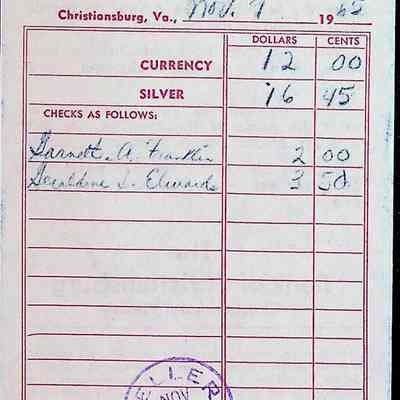 Christiansburg, Va., Nov. 7 1965
DOLLARS CENTS
CURRENCY 12 00
SILVER 16 45
CHECKS AS FOLLOWS:
Garnett A. Franklin 2 00
Geraldine S. Edwards 3 50
TELLER
NOV